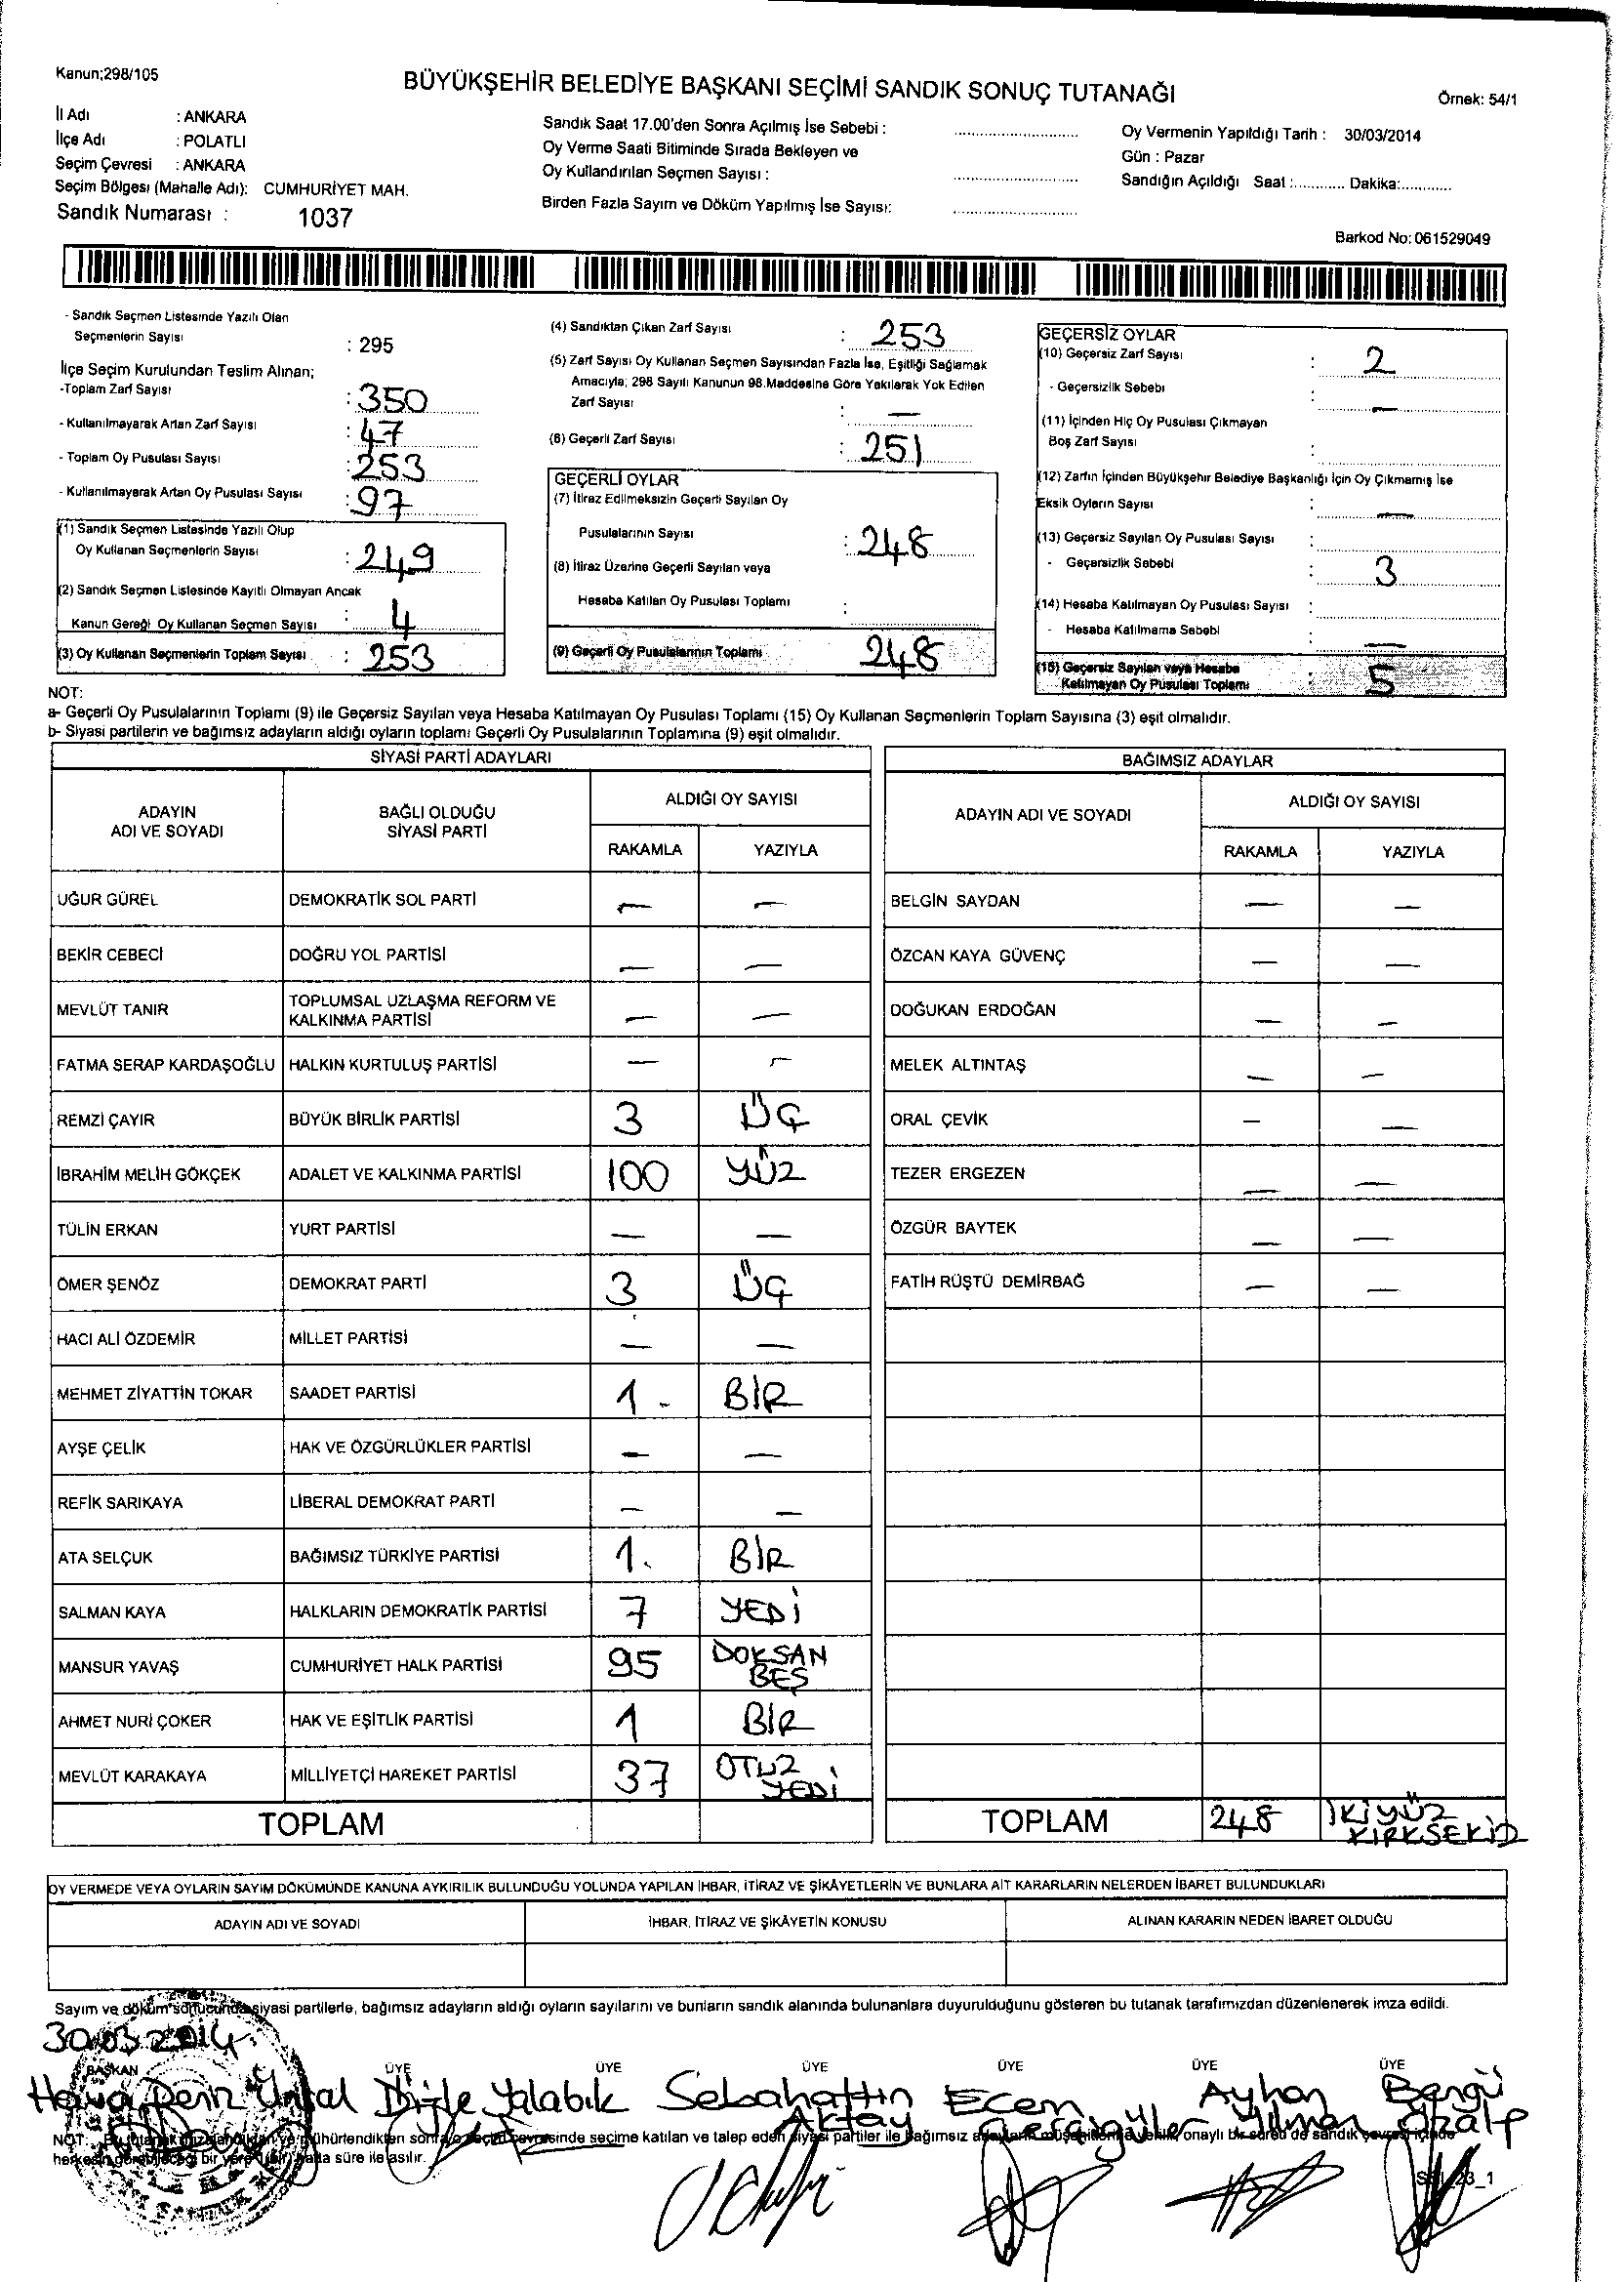 Kanun;298/105
BÜYÜKŞEHİR BELEDİYE BAŞKANI SEÇİMİ SANDIK SONUÇ TUTANAĞI
Örnek: 54/1
İl Adı : ANKARA
İlçe Adı : POLATLI
Seçim Çevresi : ANKARA
Seçim Bölgesi (Mahalle Adı): CUMHURİYET MAH.
Sandık Numarası : 1037
Sandık Saat 17.00'den Sonra Açılmış İse Sebebi :
Oy Verme Saati Bitiminde Sırada Bekleyen ve
Oy Kullandırılan Seçmen Sayısı :
Birden Fazla Sayım ve Döküm Yapılmış İse Sayısı:
Oy Vermenin Yapıldığı Tarih : 30/03/2014
Gün : Pazar
Sandığın Açıldığı Saat :............ Dakika:............
Barkod No: 061529049
- Sandık Seçmen Listesinde Yazılı Olan
Seçmenlerin Sayısı : 295
İlçe Seçim Kurulundan Teslim Alınan;
-Toplam Zarf Sayısı : 350
- Kullanılmayarak Artan Zarf Sayısı : 47
- Toplam Oy Pusulası Sayısı : 253
- Kullanılmayarak Artan Oy Pusulası Sayısı : 97
(1) Sandık Seçmen Listesinde Yazılı Olup
Oy Kullanan Seçmenlerin Sayısı : 249
(2) Sandık Seçmen Listesinde Kayıtlı Olmayan Ancak
Kanun Gereği Oy Kullanan Seçmen Sayısı : 4
(3) Oy Kullanan Seçmenlerin Toplam Sayısı : 253
(4) Sandıktan Çıkan Zarf Sayısı : 253
(5) Zarf Sayısı Oy Kullanan Seçmen Sayısından Fazla İse, Eşitliği Sağlamak
Amacıyla; 298 Sayılı Kanunun 98.Maddesine Göre Yakılarak Yok Edilen
Zarf Sayısı : —
(6) Geçerli Zarf Sayısı : 251
GEÇERLİ OYLAR
(7) İtiraz Edilmeksizin Geçerli Sayılan Oy
Pusulalarının Sayısı : 248
(8) İtiraz Üzerine Geçerli Sayılan veya
Hesaba Katılan Oy Pusulası Toplamı :
(9) Geçerli Oy Pusulalarının Toplamı 248
GEÇERSİZ OYLAR
(10) Geçersiz Zarf Sayısı : 2
- Geçersizlik Sebebi : —
(11) İçinden Hiç Oy Pusulası Çıkmayan
Boş Zarf Sayısı :
(12) Zarfın İçinden Büyükşehir Belediye Başkanlığı İçin Oy Çıkmamış İse
Eksik Oyların Sayısı : —
(13) Geçersiz Sayılan Oy Pusulası Sayısı :
- Geçersizlik Sebebi : 3
(14) Hesaba Katılmayan Oy Pusulası Sayısı :
- Hesaba Katılmama Sebebi : —
(15) Geçersiz Sayılan veya Hesaba
Katılmayan Oy Pusulası Toplamı : 5
NOT:
a- Geçerli Oy Pusulalarının Toplamı (9) ile Geçersiz Sayılan veya Hesaba Katılmayan Oy Pusulası Toplamı (15) Oy Kullanan Seçmenlerin Toplam Sayısına (3) eşit olmalıdır.
b- Siyasi partilerin ve bağımsız adayların aldığı oyların toplamı Geçerli Oy Pusulalarının Toplamına (9) eşit olmalıdır.
SİYASİ PARTİ ADAYLARI
ADAYIN ADI VE SOYADI BAĞLI OLDUĞU SİYASİ PARTİ ALDIĞI OY SAYISI
RAKAMLA YAZIYLA
UĞUR GÜREL DEMOKRATİK SOL PARTİ — —
BEKİR CEBECİ DOĞRU YOL PARTİSİ — —
MEVLÜT TANIR TOPLUMSAL UZLAŞMA REFORM VE KALKINMA PARTİSİ — —
FATMA SERAP KARDAŞOĞLU HALKIN KURTULUŞ PARTİSİ — —
REMZİ ÇAYIR BÜYÜK BİRLİK PARTİSİ 3 ÜÇ
İBRAHİM MELİH GÖKÇEK ADALET VE KALKINMA PARTİSİ 100 YÜZ
TÜLİN ERKAN YURT PARTİSİ — —
ÖMER ŞENÖZ DEMOKRAT PARTİ 3 ÜÇ
HACI ALİ ÖZDEMİR MİLLET PARTİSİ — —
MEHMET ZİYATTİN TOKAR SAADET PARTİSİ 1. BİR
AYŞE ÇELİK HAK VE ÖZGÜRLÜKLER PARTİSİ — —
REFİK SARIKAYA LİBERAL DEMOKRAT PARTİ — —
ATA SELÇUK BAĞIMSIZ TÜRKİYE PARTİSİ 1. BİR
SALMAN KAYA HALKLARIN DEMOKRATİK PARTİSİ 7 YEDİ
MANSUR YAVAŞ CUMHURİYET HALK PARTİSİ 95 DOKSAN BEŞ
AHMET NURİ ÇOKER HAK VE EŞİTLİK PARTİSİ 1 BİR
MEVLÜT KARAKAYA MİLLİYETÇİ HAREKET PARTİSİ 37 OTUZ YEDİ
TOPLAM
BAĞIMSIZ ADAYLAR
ADAYIN ADI VE SOYADI ALDIĞI OY SAYISI
RAKAMLA YAZIYLA
BELGİN SAYDAN — —
ÖZCAN KAYA GÜVENÇ — —
DOĞUKAN ERDOĞAN — —
MELEK ALTINTAŞ — —
ORAL ÇEVİK — —
TEZER ERGEZEN — —
ÖZGÜR BAYTEK — —
FATİH RÜŞTÜ DEMİRBAĞ — —
TOPLAM 248 İKİYÜZ KIRKSEKİZ
OY VERMEDE VEYA OYLARIN SAYIM DÖKÜMÜNDE KANUNA AYKIRILIK BULUNDUĞU YOLUNDA YAPILAN İHBAR, İTİRAZ VE ŞİKÂYETLERİN VE BUNLARA AİT KARARLARIN NELERDEN İBARET BULUNDUKLARI
ADAYIN ADI VE SOYADI İHBAR, İTİRAZ VE ŞİKÂYETİN KONUSU ALINAN KARARIN NEDEN İBARET OLDUĞU
Sayım ve döküm sonucunda siyasi partilerle, bağımsız adayların aldığı oyların sayılarını ve bunların sandık alanında bulunanlara duyurulduğunu gösteren bu tutanak tarafımızdan düzenlenerek imza edildi.
30.03.2014
BAŞKAN ÜYE ÜYE ÜYE ÜYE ÜYE ÜYE
Hava Deniz Ünsal Dicle Yalabık Sebahattin Aktay Ecem Ayhan Yılman Bengü Özalp
NOT : mühürlendikten sonra o seçim çevresinde seçime katılan ve talep eden siyasi partiler ile bağımsız adayların müşahitlerine onaylı bir sureti de sandık çevresi içinde
herkesin görebileceği bir yere hafta süre ile asılır.